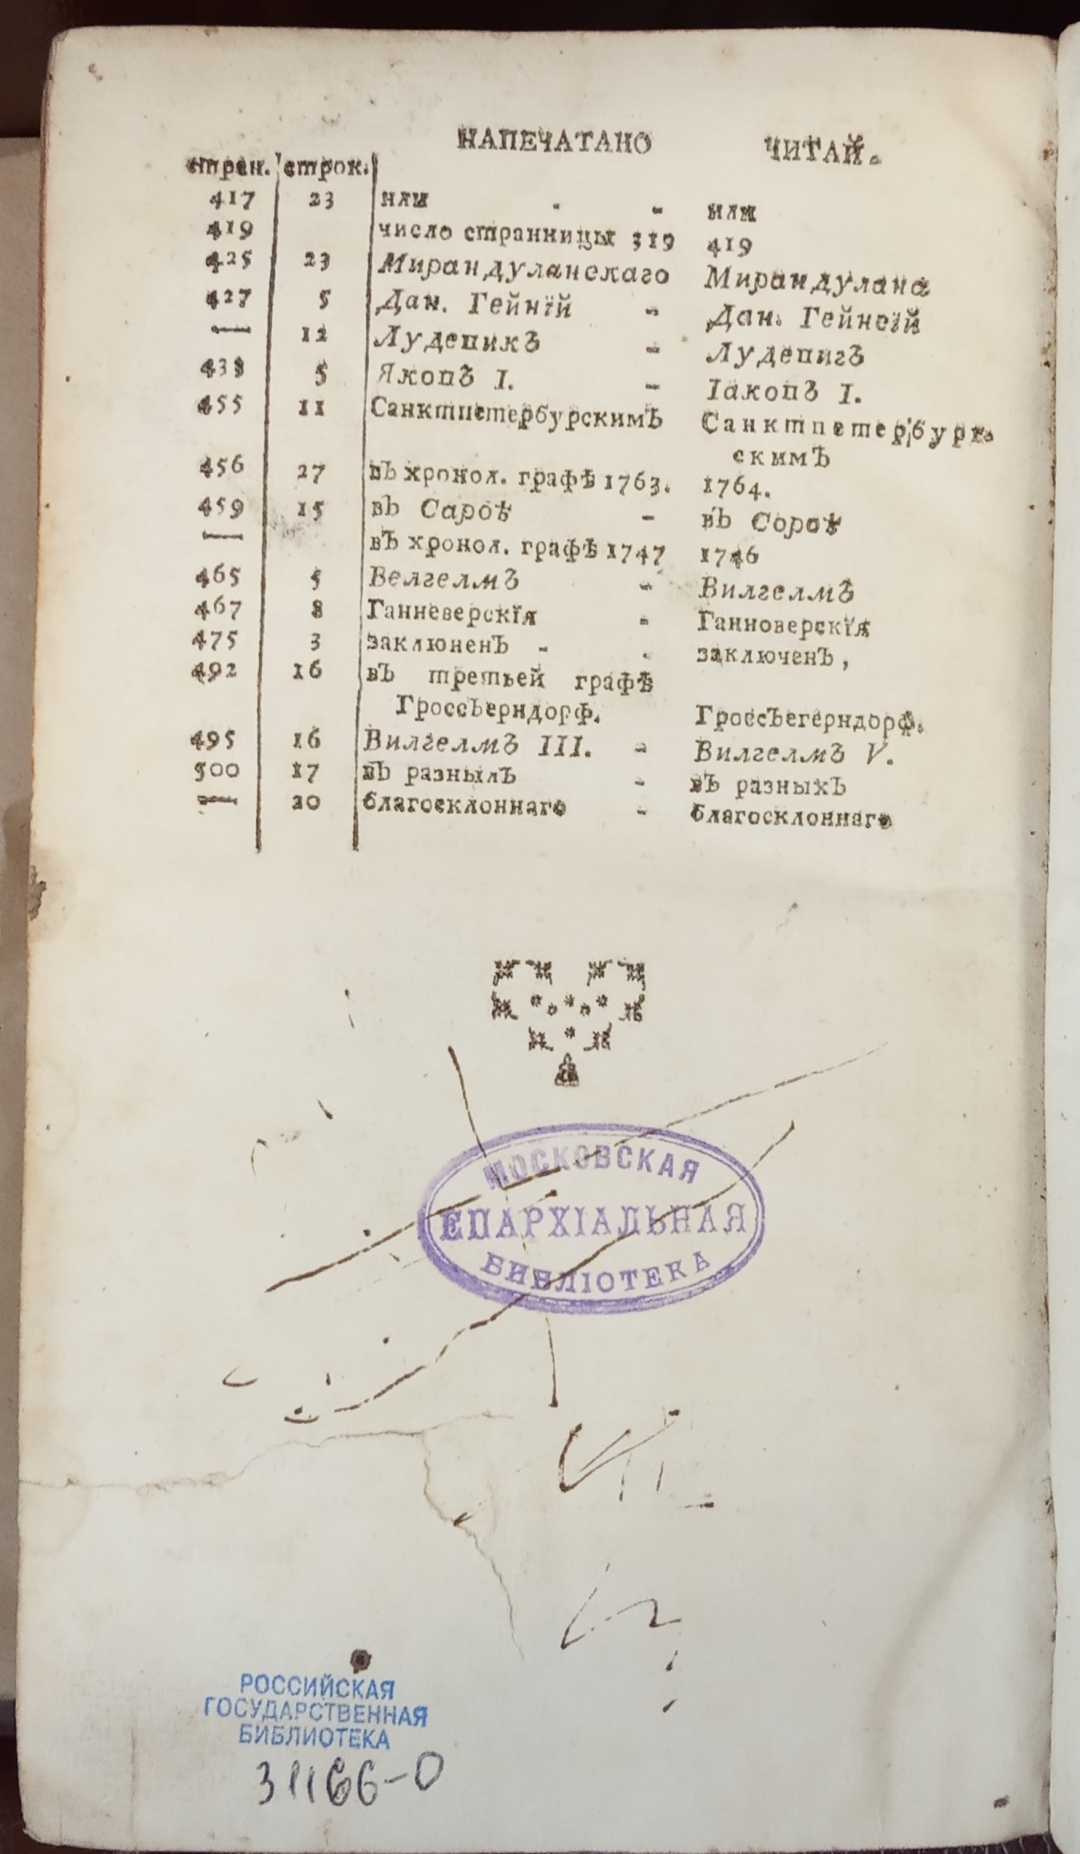 НАПЕЧАТАНО ЧИТАЙ.
стран. строк.
417 23 или - - или
419 число странницы 319 419
425 23 Мирандуланскаго Мирандулана
427 5 Дан. Гейнїй - Дан. Гейнсїй
— 12 Лудепикъ - Лудепигъ
438 5 Якопъ I. - Іакопъ I.
455 11 Санктпетербурскимъ Санктпетербург-
скимъ
456 27 въ хронол. графѣ 1763. 1764.
459 15 въ Сароѣ - въ Сороѣ
— въ хронол. графѣ 1747 1746
465 5 Велгелмъ - Вилгелмъ
467 8 Ганневерскїя - Ганноверскїя
475 3 заклюненъ - - заключенъ,
492 16 въ третьей графѣ
Гроссъерндорф. Гроссъегерндорф.
495 16 Вилгелмъ III. - Вилгелмъ V.
500 17 въ разнылъ - въ разныхъ
— 20 благосклоннаго - благосклоннаго
МОСКОВСКАЯ
ЕПАРХІАЛЬНАЯ
БИБЛІОТЕКА
РОССИЙСКАЯ
ГОСУДАРСТВЕННАЯ
БИБЛИОТЕКА
31166-0